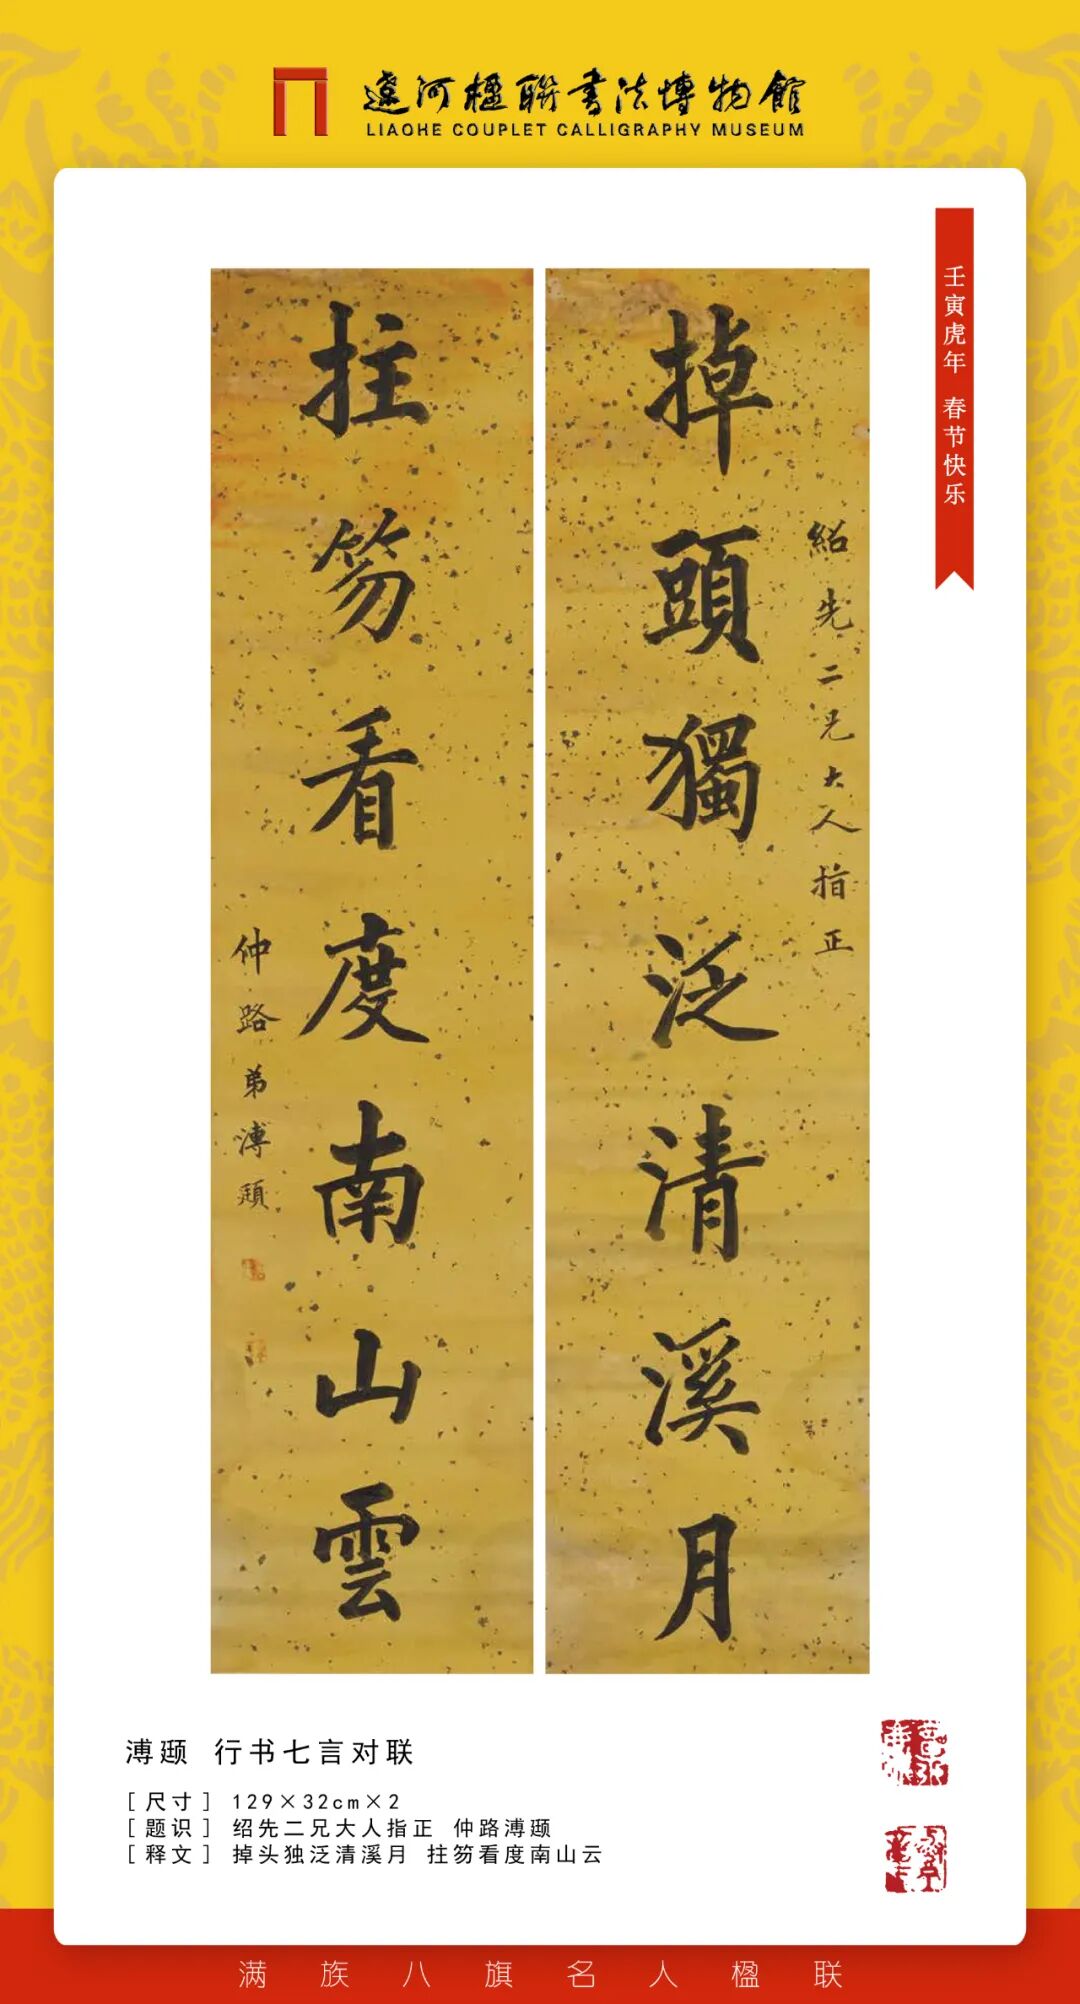 遼河楹聯書法博物館
LIAOHE COUPLET CALLIGRAPHY MUSEUM
壬寅虎年 春节快乐
紹先二兄大人指正
掉頭獨泛清溪月
拄笏看度南山雲
仲路弟溥頲
溥颋 行书七言对联
[尺寸] 129×32cm×2
[题识] 绍先二兄大人指正 仲路溥颋
[释文] 掉头独泛清溪月 拄笏看度南山云
满族八旗名人楹联